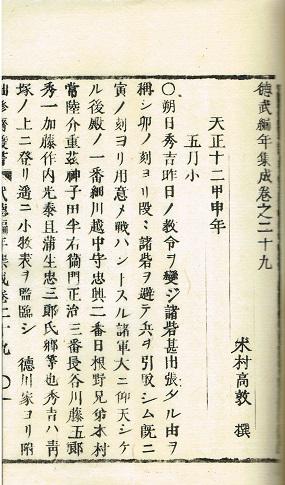 德武編年集成卷之二十九
木村高敦 撰
天正十二甲申年
五月小
〇朔日秀吉昨日ノ教令ヲ變ジ諸砦甚出張タル由ヲ
稱シ卯ノ刻ヨリ段〻諸砦ヲ避テ兵ヲ引取シム既ニ
寅ノ刻ヨリ用意メ戰ハントスル諸軍大ニ仰天シケ
ル後殿ノ一番細川越中守忠興二番日根野兄弟木村
常陸介重茲神子田半右衞門正治三番長谷川藤五郎
秀一加藤作内光泰且蒲生忠三郎氏鄕等也秀吉ハ靑
塚ノ上ニ登リ遥ニ小牧表ヲ監臨シ 德川家ヨリ附
武德編年集成卷二十九 〇一